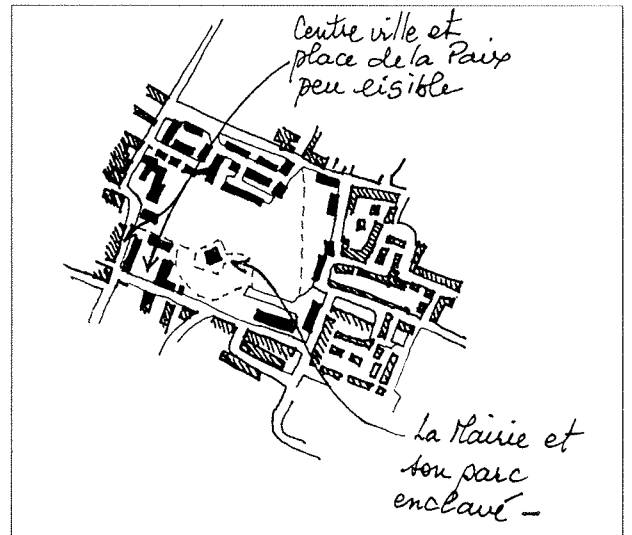 Centre ville et
place de la Paix
peu lisible
La Mairie et
son parc
enclavé -